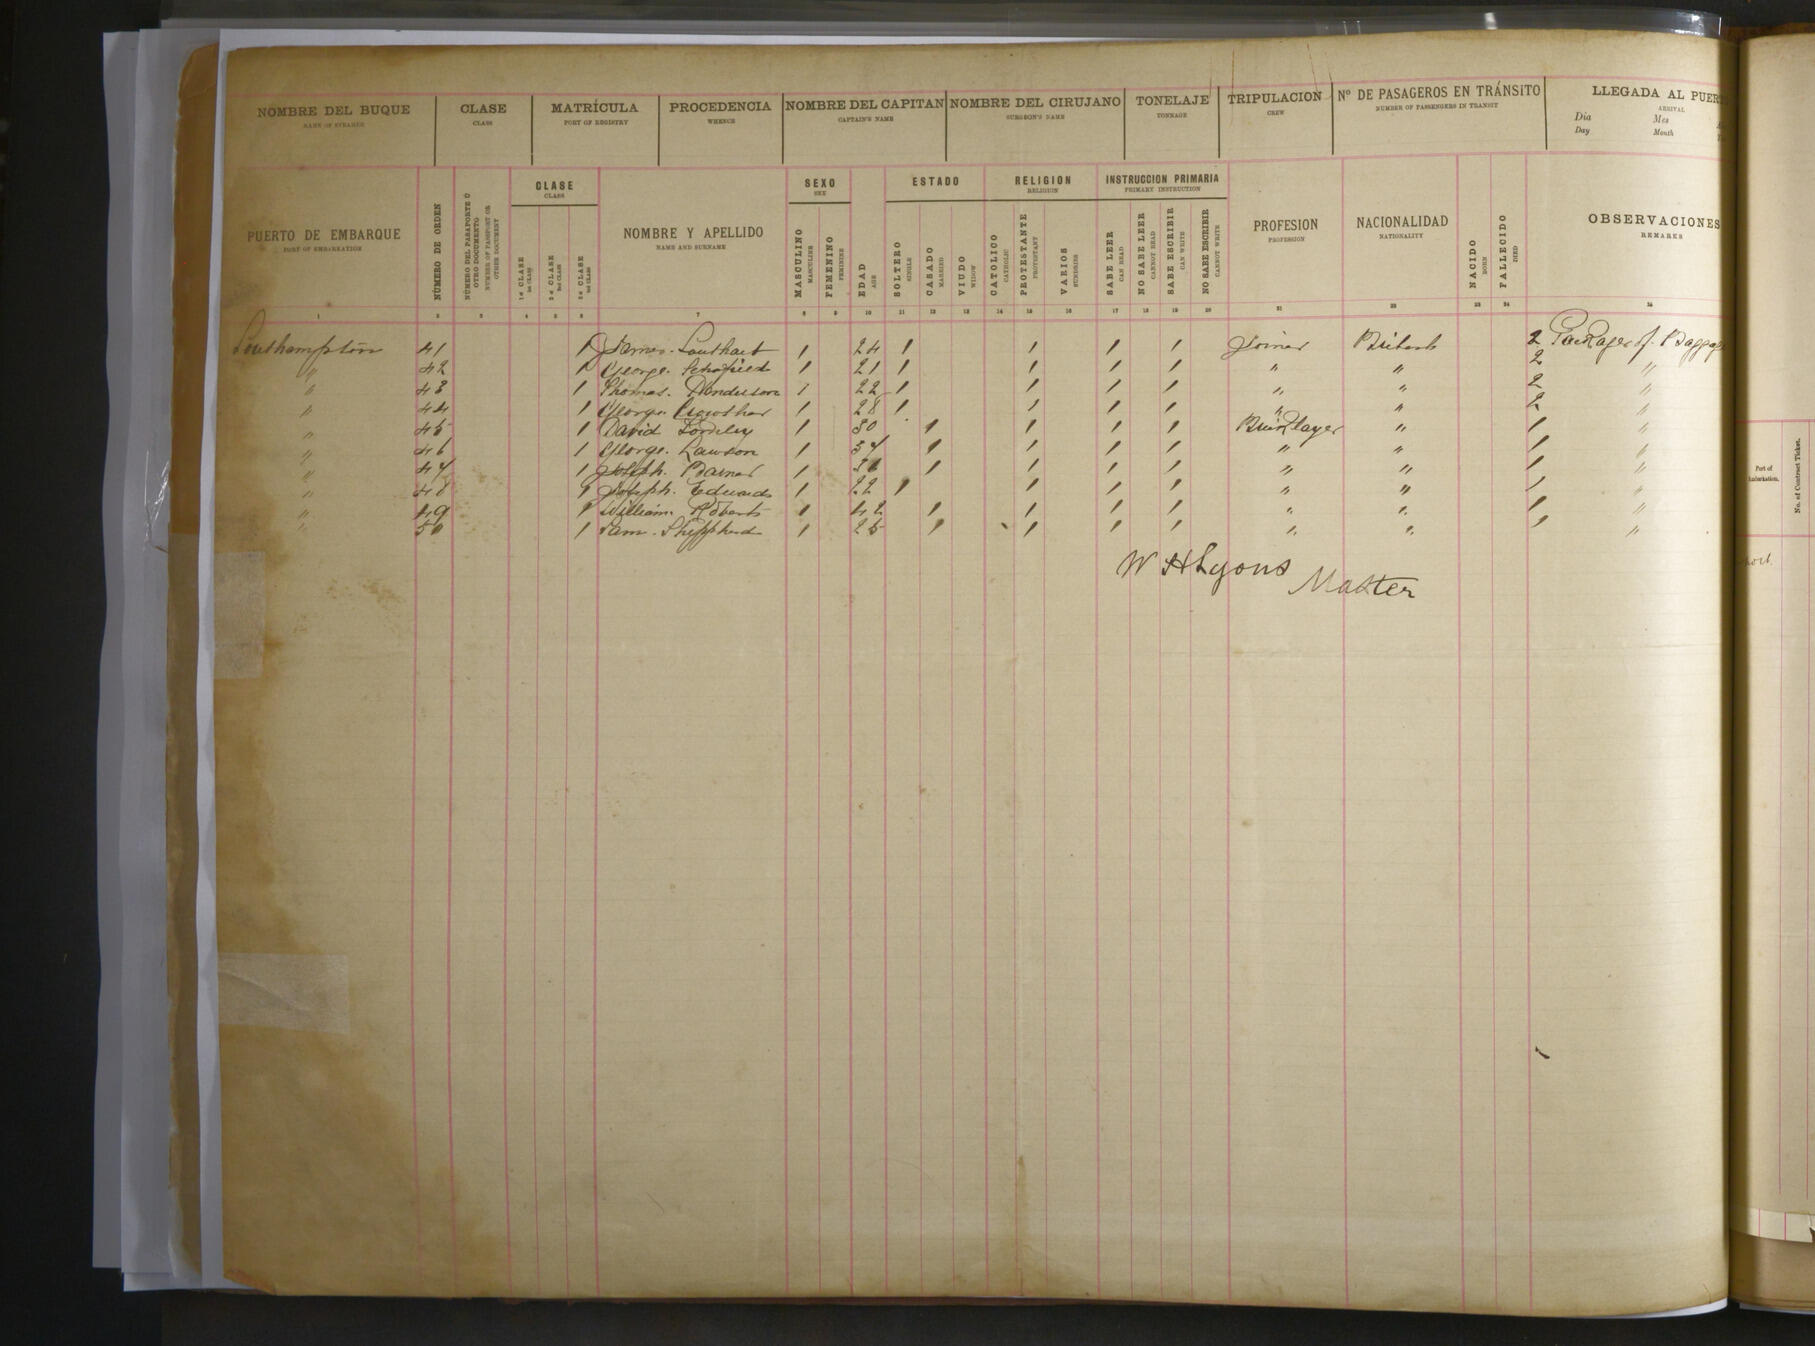 NOMBRE DEL BUQUE CLASE MATRÍCULA PROCEDENCIA NOMBRE DEL CAPITAN NOMBRE DEL CIRUJANO TONELAJE TRIPULACION Nº DE PASAGEROS EN TRÁNSITO LLEGADA AL PUER
NAME OF STEAMER CLASS PORT OF REGISTRY WHENCE CAPTAIN'S NAME SURGEON'S NAME TONNAGE CREW NUMBER OF PASSENGERS IN TRANSIT ARRIVAL
Dia Mes
Day Month
CLASE SEXO ESTADO RELIGION INSTRUCCION PRIMARIA
CLASS SEX RELIGION PRIMARY INSTRUCTION
PUERTO DE EMBARQUE
PORT OF EMBARKATION
NÚMERO DE ORDEN
NÚMERO DEL PASAPORTE O OTRO DOCUMENTO
NUMBER OF PASSPORT OR OTHER DOCUMENT
1ª CLASE
1st CLASS
2ª CLASE
2nd CLASS
3ª CLASE
3rd CLASS
NOMBRE Y APELLIDO
NAME AND SURNAME
MASCULINO
MASCULINE
FEMENINO
FEMININE
EDAD
AGE
SOLTERO
SINGLE
CASADO
MARRIED
VIUDO
WIDOW
CATOLICO
CATHOLIC
PROTESTANTE
PROTESTANT
VARIOS
SUNDRIES
SABE LEER
CAN READ
NO SABE LEER
CANNOT READ
SABE ESCRIBIR
CAN WRITE
NO SABE ESCRIBIR
CANNOT WRITE
PROFESION
PROFESSION
NACIONALIDAD
NATIONALITY
NACIDO
BORN
FALLECIDO
DIED
OBSERVACIONES
REMARKS
1 2 3 4 5 6 7 8 9 10 11 12 13 14 15 16 17 18 19 20 21 22 23 24
Southampton 41 1 James. 1 24 1 1 1 1 Joiner British 2 Packages of Baggage
" 42 1 George. Schofield 1 21 1 1 1 1 " " 2 "
" 43 1 Thomas. Henderson 1 22 1 1 1 1 " " 2 "
" 44 1 George. Crowther 1 28 1 1 1 1 " " 2 "
" 45 1 David 1 30 1 1 1 1 Bricklayer " 1 "
" 46 1 George. Lawson 1 34 1 1 1 1 " " 1 "
" 47 1 Joseph. 1 1 1 1 1 " " 1 "
" 48 1 Joseph. Edwards 1 22 1 1 1 1 " " 1 "
" 49 1 William. Roberts 1 42 1 1 1 1 " " 1 "
" 50 1 Sam. Sheppherd 1 25 1 1 1 1 " " 1 "
W H Lyons
Master
Port of Embarkation.
No. of Contract Ticket.